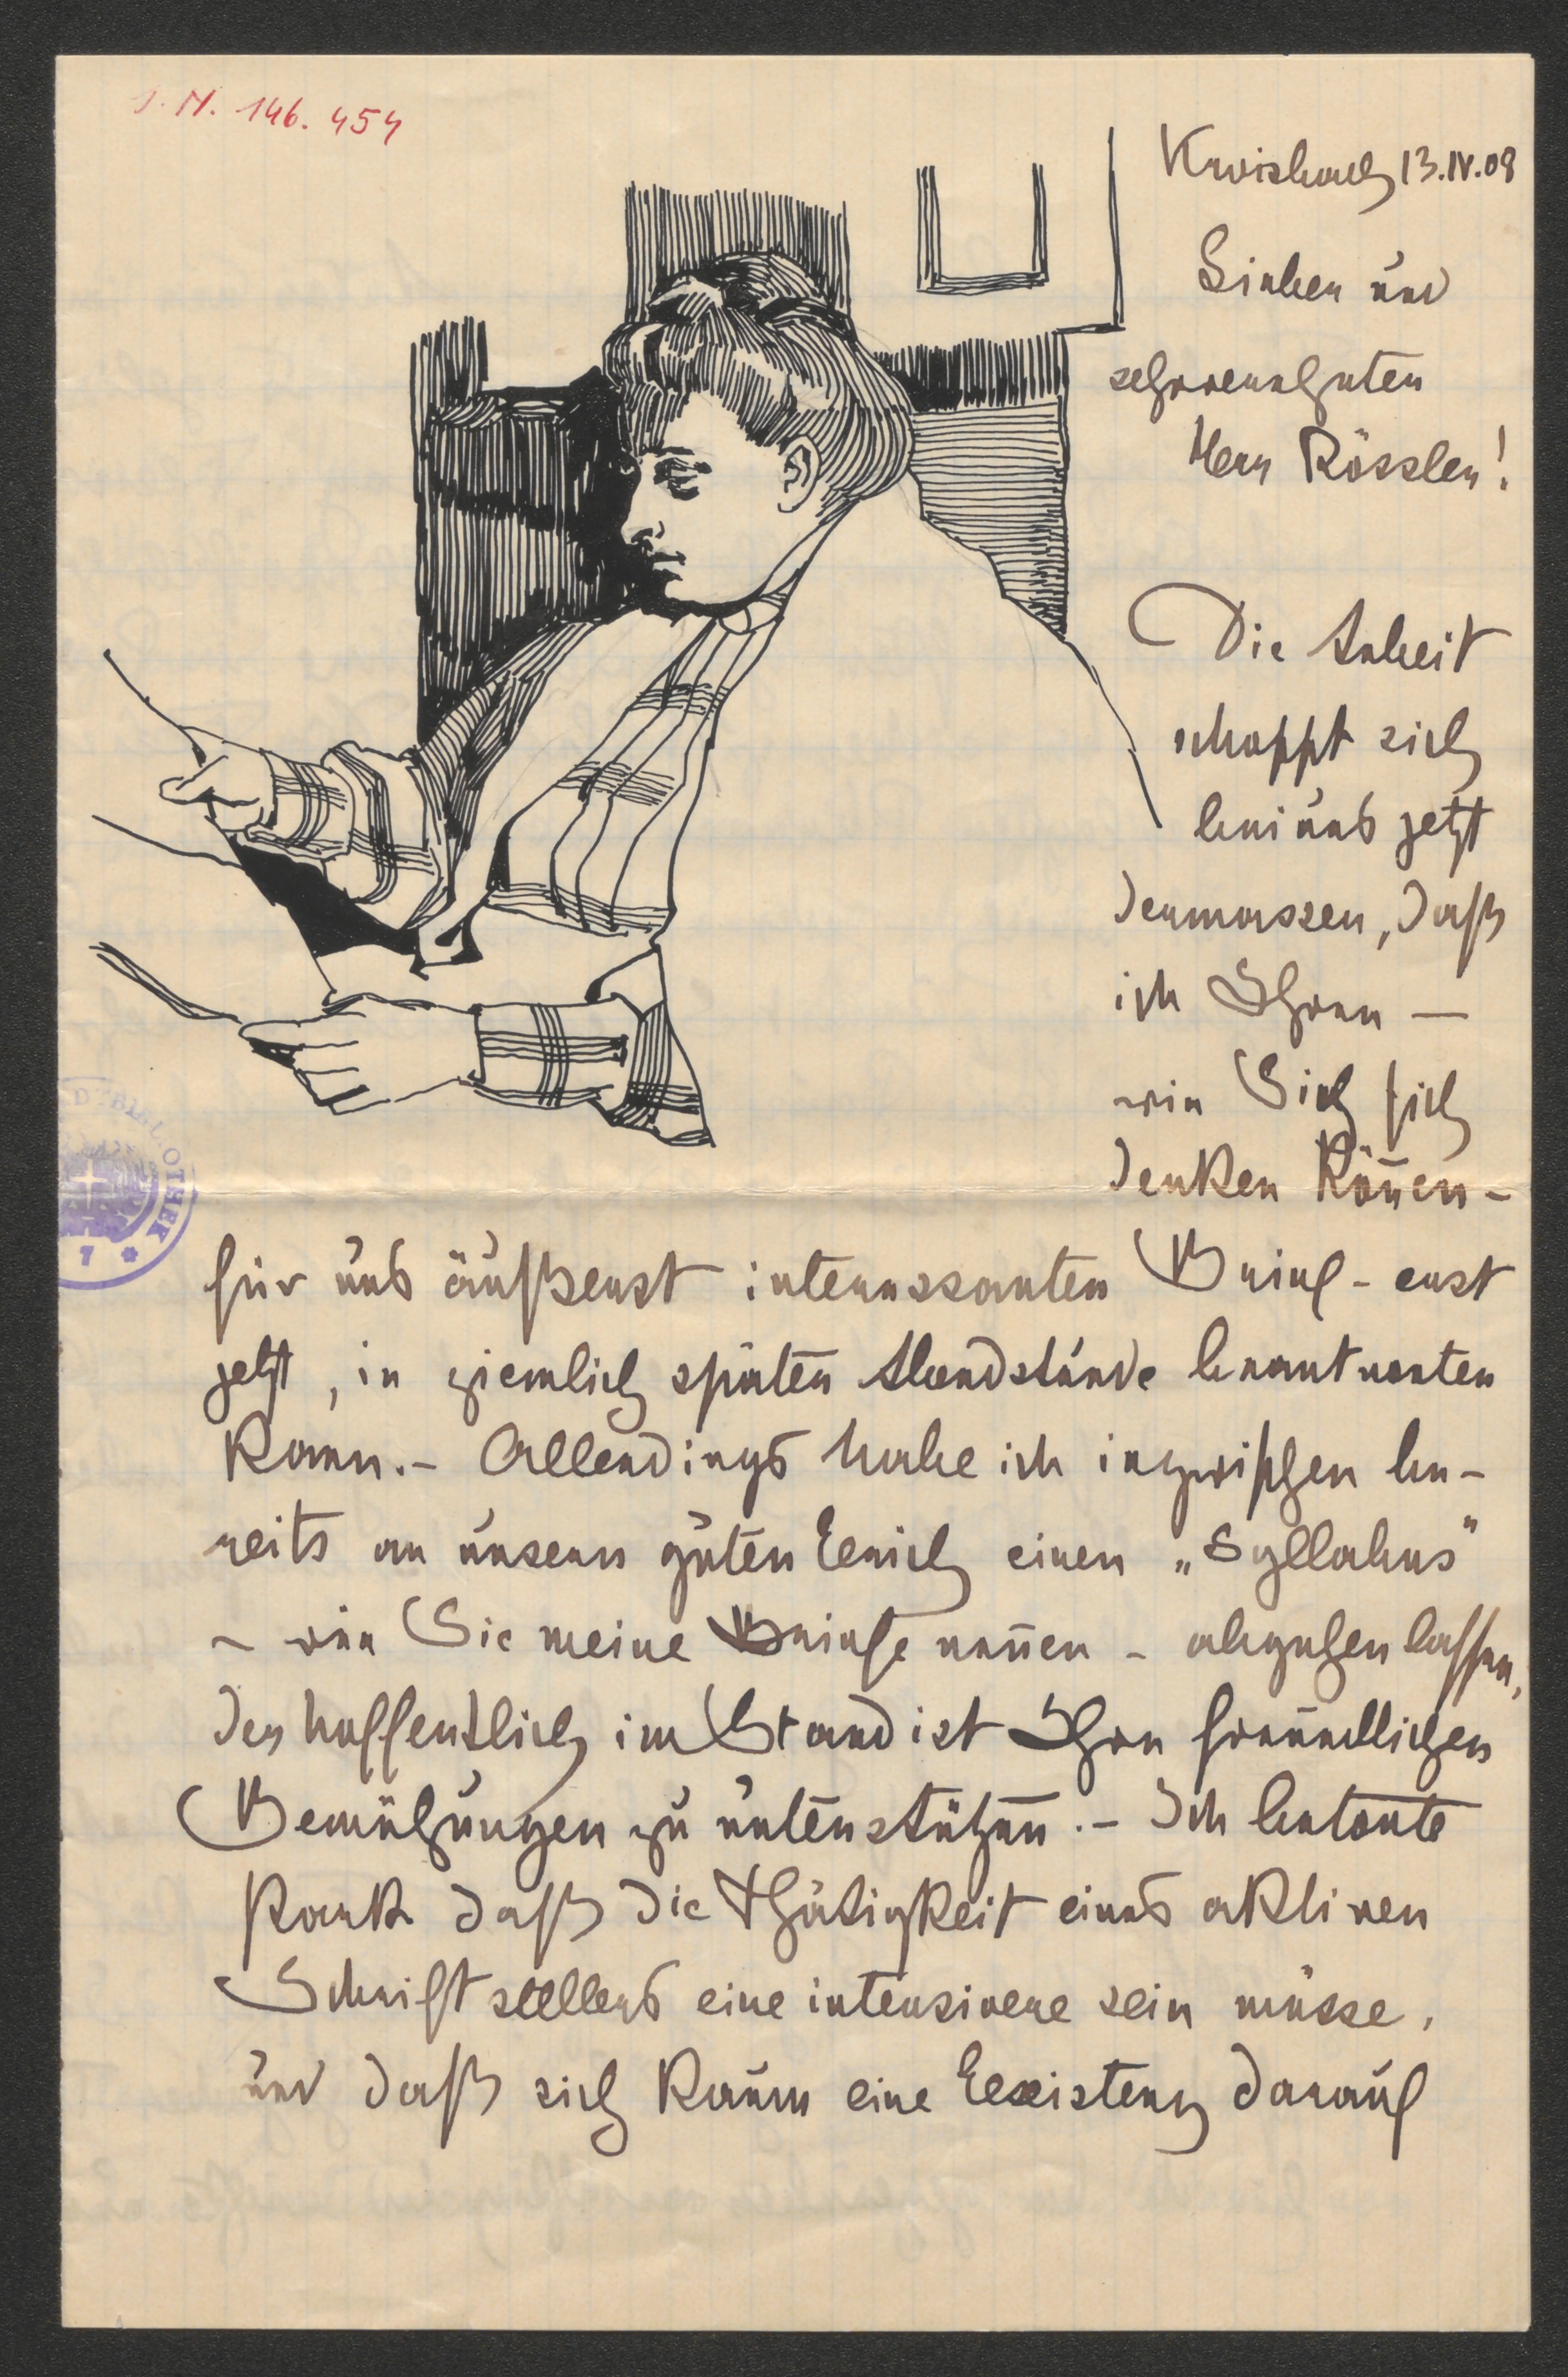 I.N. 146.454
Kroisbach 13.IV.08
Lieber und
sehrverehrter
Herr Rössler!
Die Arbeit
schoppt sich
bei uns jetzt
dermassen, daß
ich Ihren —
wie Sich sich
denken kön̄en -
für uns äußerst interessanten Brief - erst
jetzt, in ziemlich später Abendstunde beantworten
kann. - Allerdings habe ich inzwischen be-
reits an unsern guten Erich einen „Syllabus"
- wie Sie meine Briefe nen̄en - abgehen lassen,
der hoffentlich im Stand ist Ihre freundlichen
Bemühungen zu unterstützen. - Ich betonte
stark daß die Thätigkeit eines aktiven
Schriftstellers eine intensivere sein müsse,
und daß sich kaum eine Existenz darauf
BIBLIOTHEK
7